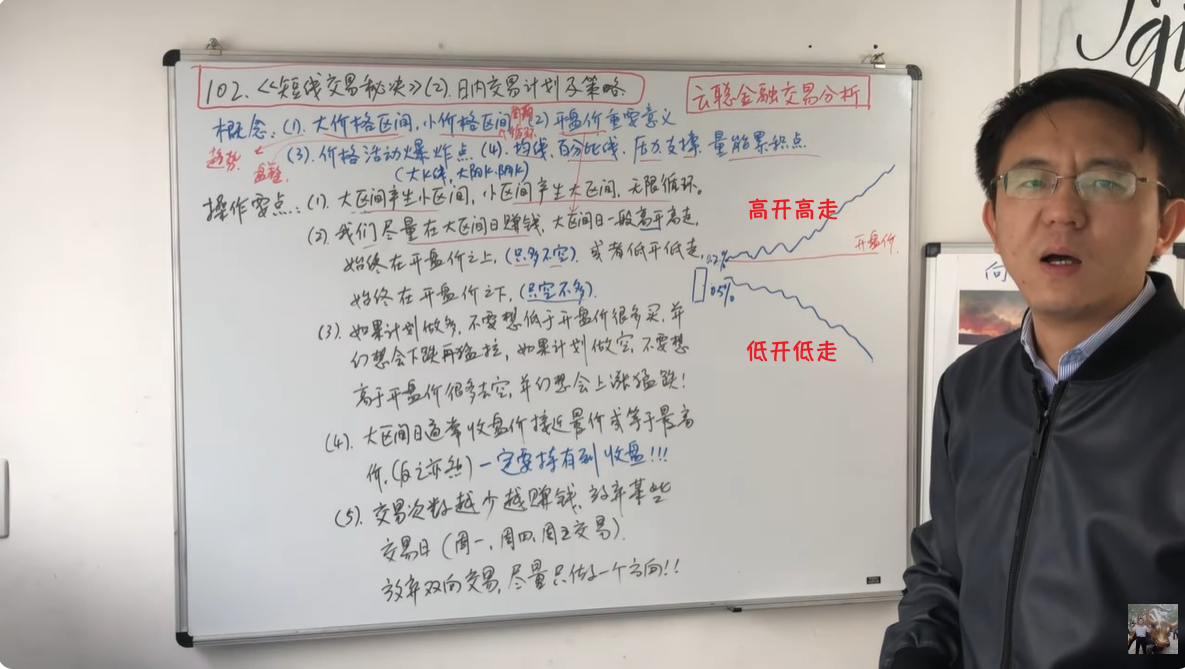 102.《短线交易秘决》(2).日内交易计划及策略
云聪金融交易分析
概念:(1).大价格区间,小价格区间 (2)开盘价重要意义
周期
循环
趋势
盘整
(3).价格活动爆炸点 (4).均线,百分比线,压力支撑,量能累积点
(大K线,大阳K,阴K)
操作要点:(1).大区间产生小区间,小区间产生大区间,无限循环。
(2).我们尽量在大区间日赚钱,大区间日一般高开高走,
始终在开盘价之上,(只多不空).或者低开低走,
始终在开盘价之下,(只空不多).
(3).如果计划做多,不要想低于开盘价很多买,并
幻想会下跌再猛拉,如果计划做空,不要想
高于开盘价很多去空,并幻想会上涨猛跌!
(4).大区间日通常收盘价接近最价或等于最高
价,(反之亦然)一定要持有到收盘!!!
(5).交易次数越少越赚钱,放弃某些
交易日(周一,周四,周五交易).
放弃双向交易,尽量只做一个方向!!
高开高走
开盘价.
0.2%
0.5%
低开低走
向